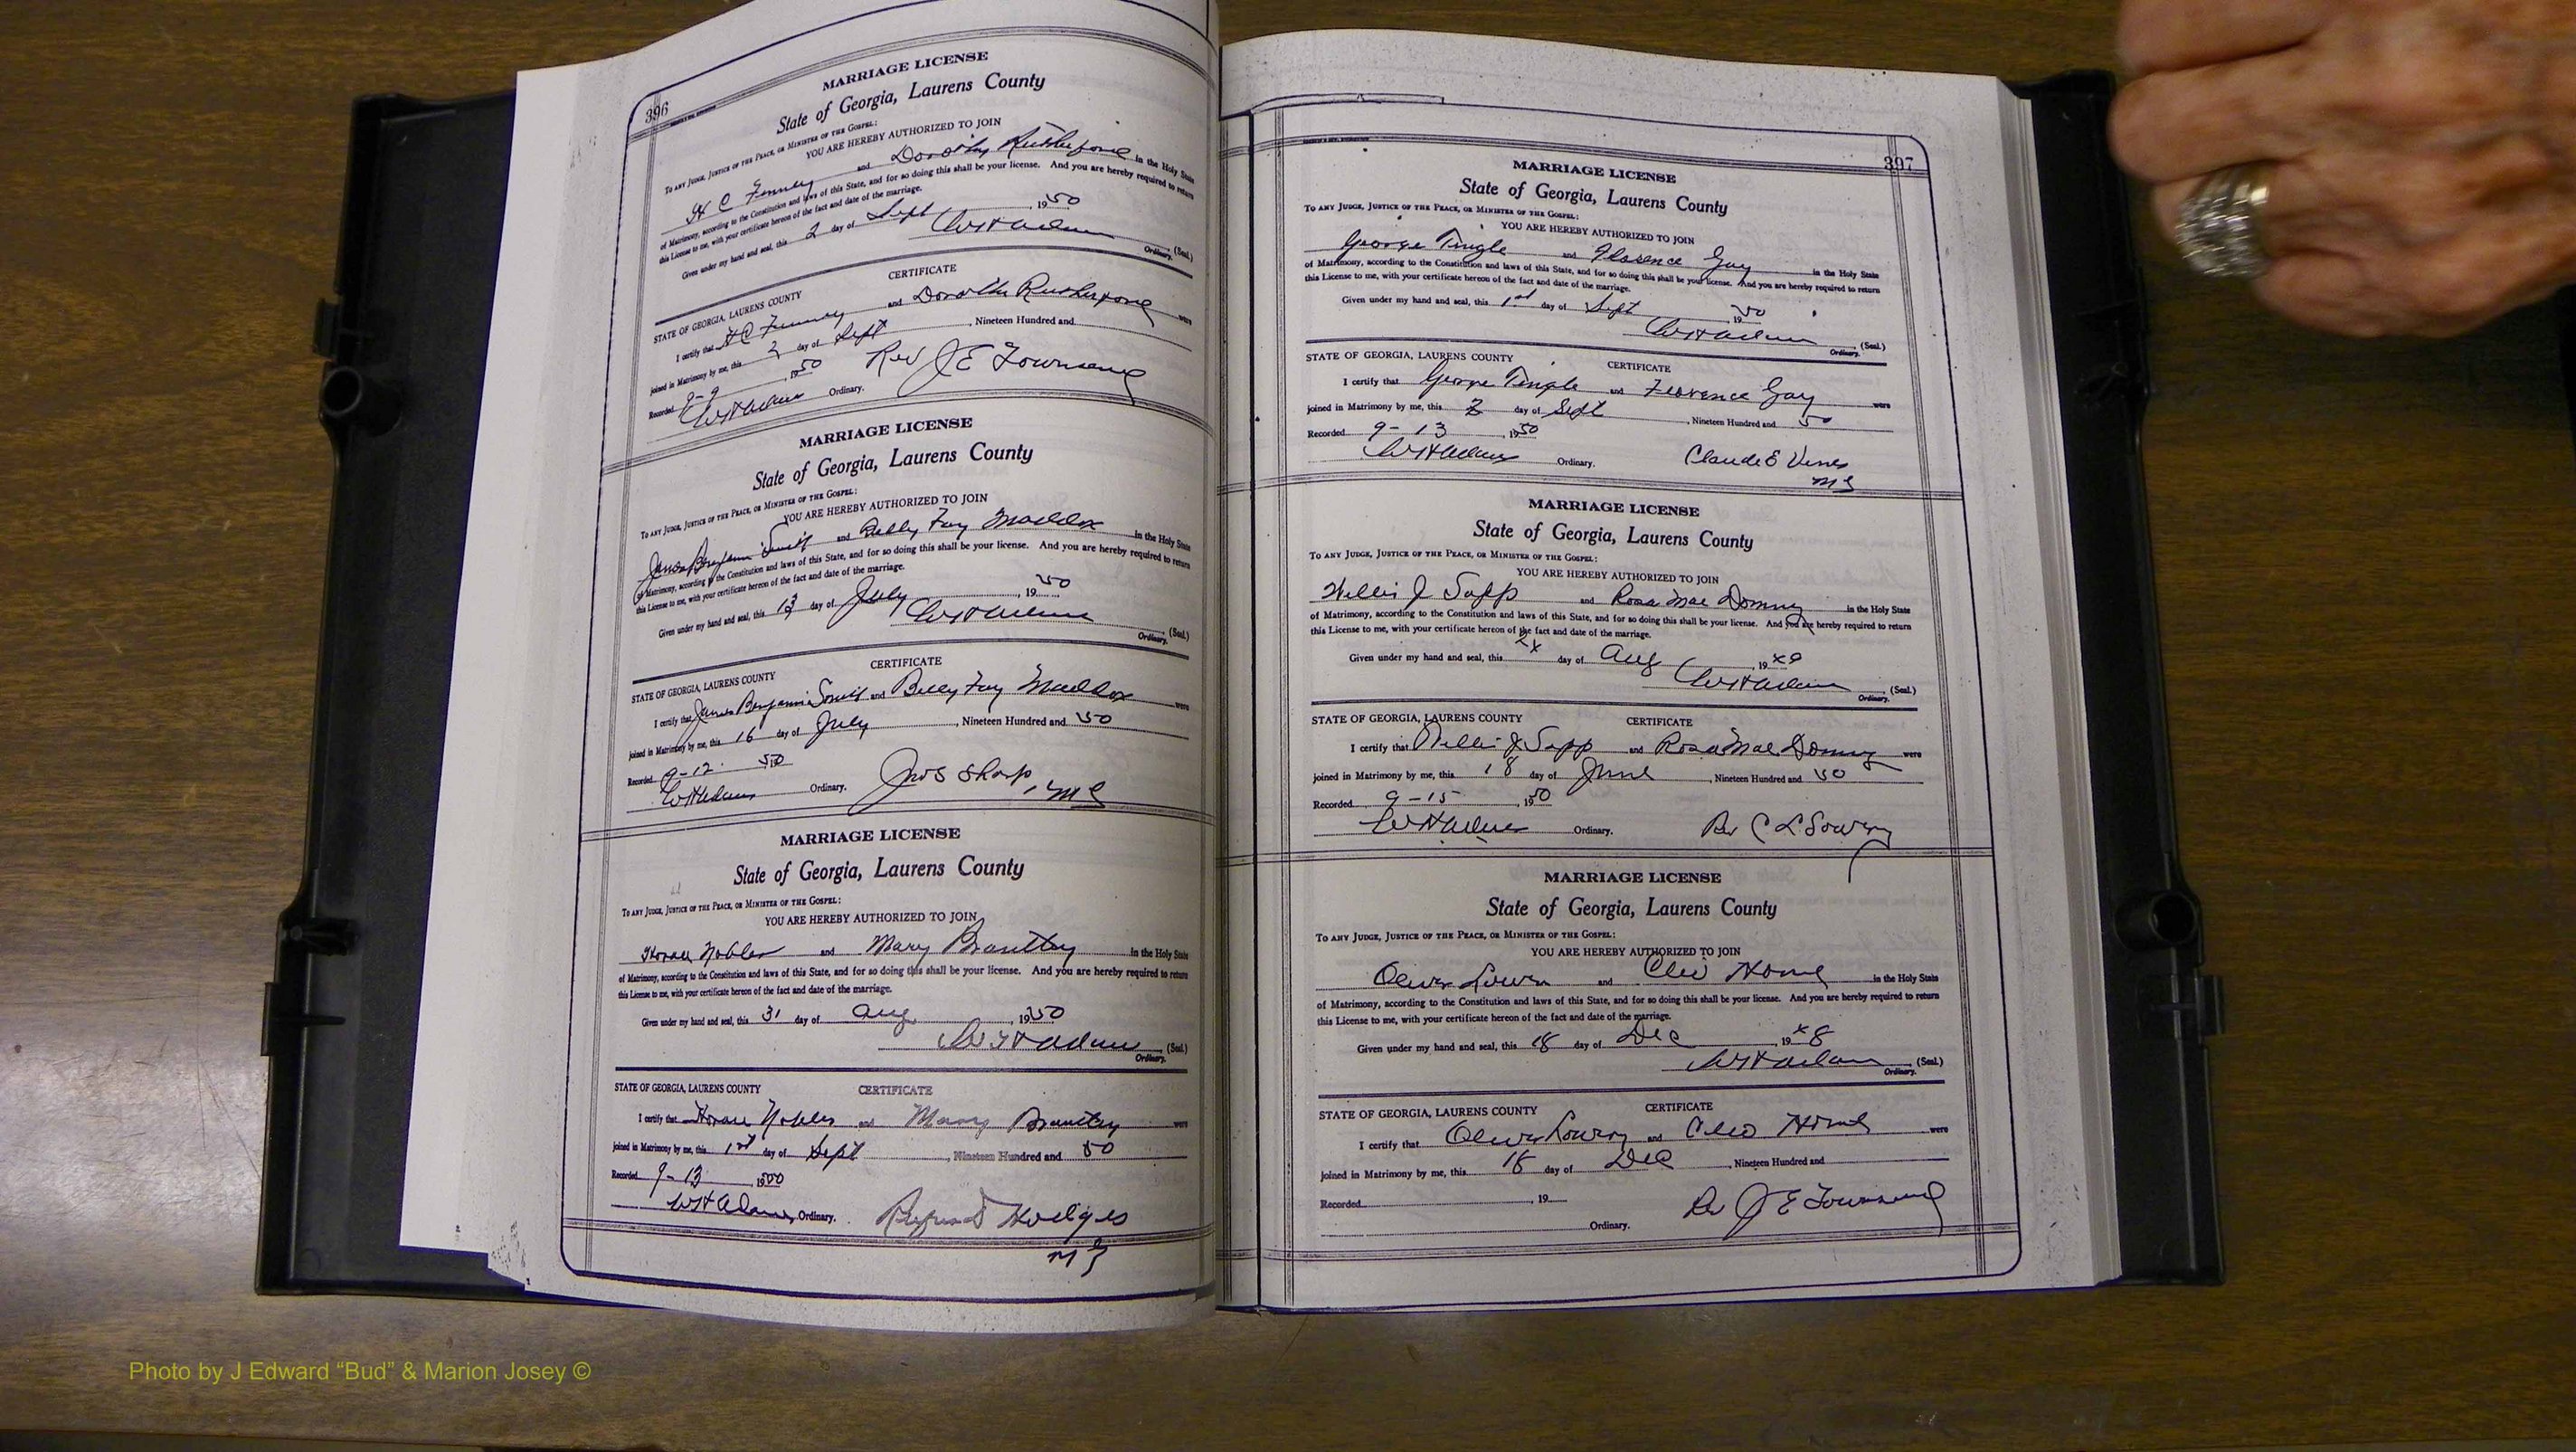 396
MARRIAGE LICENSE
State of Georgia, Laurens County
To any Judge, Justice of the Peace, or Minister of the Gospel:
YOU ARE HEREBY AUTHORIZED TO JOIN
H C Finney and Dorothy in the Holy State
of Matrimony, according to the Constitution and laws of this State, and for so doing this shall be your license. And you are hereby required to return
this License to me, with your certificate hereon of the fact and date of the marriage.
Given under my hand and seal, this 2 day of Sept, 1950
W H Adams (Seal.)
Ordinary.
CERTIFICATE
STATE OF GEORGIA, LAURENS COUNTY
I certify that H C Finney and were
joined in Matrimony by me, this 2 day of Sept, Nineteen Hundred and
Recorded 9-9, 1950 Rev J E Townsend
W H Adams Ordinary.
MARRIAGE LICENSE
State of Georgia, Laurens County
To any Judge, Justice of the Peace, or Minister of the Gospel:
YOU ARE HEREBY AUTHORIZED TO JOIN
James Benjamin Smith and Betty Fay Maddox in the Holy State
of Matrimony, according to the Constitution and laws of this State, and for so doing this shall be your license. And you are hereby required to return
this License to me, with your certificate hereon of the fact and date of the marriage.
Given under my hand and seal, this 13 day of July, 1950
W H Adams (Seal.)
Ordinary.
CERTIFICATE
STATE OF GEORGIA, LAURENS COUNTY
I certify that James Benjamin Smith and Betty Fay Maddox were
joined in Matrimony by me, this 16 day of July, Nineteen Hundred and 50
Recorded 9-12 50
W H Adams Ordinary. Jno S Sharp, MG
MARRIAGE LICENSE
State of Georgia, Laurens County
To any Judge, Justice of the Peace, or Minister of the Gospel:
YOU ARE HEREBY AUTHORIZED TO JOIN
Horace Nobles and Mary Brantley in the Holy State
of Matrimony, according to the Constitution and laws of this State, and for so doing this shall be your license. And you are hereby required to return
this License to me, with your certificate hereon of the fact and date of the marriage.
Given under my hand and seal, this 31 day of Aug, 1950
W H Adams (Seal.)
Ordinary.
STATE OF GEORGIA, LAURENS COUNTY CERTIFICATE
I certify that Horace Nobles and Mary Brantley were
joined in Matrimony by me, this 1st day of Sept, Nineteen Hundred and 50
Recorded 9-13 1950
W H Adams, Ordinary. Hodges
MG
397
MARRIAGE LICENSE
State of Georgia, Laurens County
To any Judge, Justice of the Peace, or Minister of the Gospel:
YOU ARE HEREBY AUTHORIZED TO JOIN
George Tingle and Florence Gay in the Holy State
of Matrimony, according to the Constitution and laws of this State, and for so doing this shall be your license. And you are hereby required to return
this License to me, with your certificate hereon of the fact and date of the marriage.
Given under my hand and seal, this 1st day of Sept, 1950
W H Adams (Seal.)
Ordinary.
STATE OF GEORGIA, LAURENS COUNTY CERTIFICATE
I certify that George Tingle and Florence Gay were
joined in Matrimony by me, this 2 day of Sept, Nineteen Hundred and 50
Recorded 9-13, 1950
W H Adams Ordinary. Claude E Vines
MG
MARRIAGE LICENSE
State of Georgia, Laurens County
To any Judge, Justice of the Peace, or Minister of the Gospel:
YOU ARE HEREBY AUTHORIZED TO JOIN
Willis J Sapp and Rosa Mae in the Holy State
of Matrimony, according to the Constitution and laws of this State, and for so doing this shall be your license. And you are hereby required to return
this License to me, with your certificate hereon of the fact and date of the marriage.
Given under my hand and seal, this 24 day of Aug, 1949
W H Adams (Seal.)
Ordinary.
STATE OF GEORGIA, LAURENS COUNTY CERTIFICATE
I certify that Willis J Sapp and Rosa Mae were
joined in Matrimony by me, this 18 day of June, Nineteen Hundred and 50
Recorded 9-15, 1950
W H Adams Ordinary. Rev C L
MARRIAGE LICENSE
State of Georgia, Laurens County
To any Judge, Justice of the Peace, or Minister of the Gospel:
YOU ARE HEREBY AUTHORIZED TO JOIN
Oliver Lowery and Cleo Horne in the Holy State
of Matrimony, according to the Constitution and laws of this State, and for so doing this shall be your license. And you are hereby required to return
this License to me, with your certificate hereon of the fact and date of the marriage.
Given under my hand and seal, this 18 day of Dec, 1948
W H Adams (Seal.)
Ordinary.
STATE OF GEORGIA, LAURENS COUNTY CERTIFICATE
I certify that Oliver Lowery and Cleo Horne were
joined in Matrimony by me, this 18 day of Dec, Nineteen Hundred and
Recorded, 19
Rev J E Townsend
Ordinary.
Photo by J Edward “Bud” & Marion Josey ©